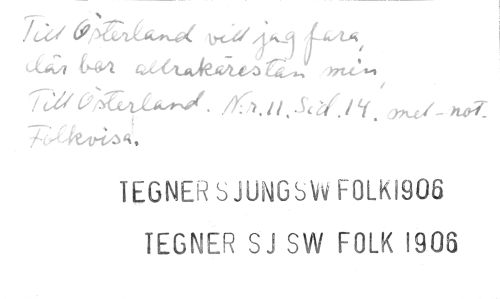 Till Österland vill jag fara,
där bor allrakärestan min,
Till Österland. N:r.11. Sid.14. mel-not.
Folkvisa.
TEGNER SJUNGSW FOLK1906
TEGNER SJ SW FOLK 1906